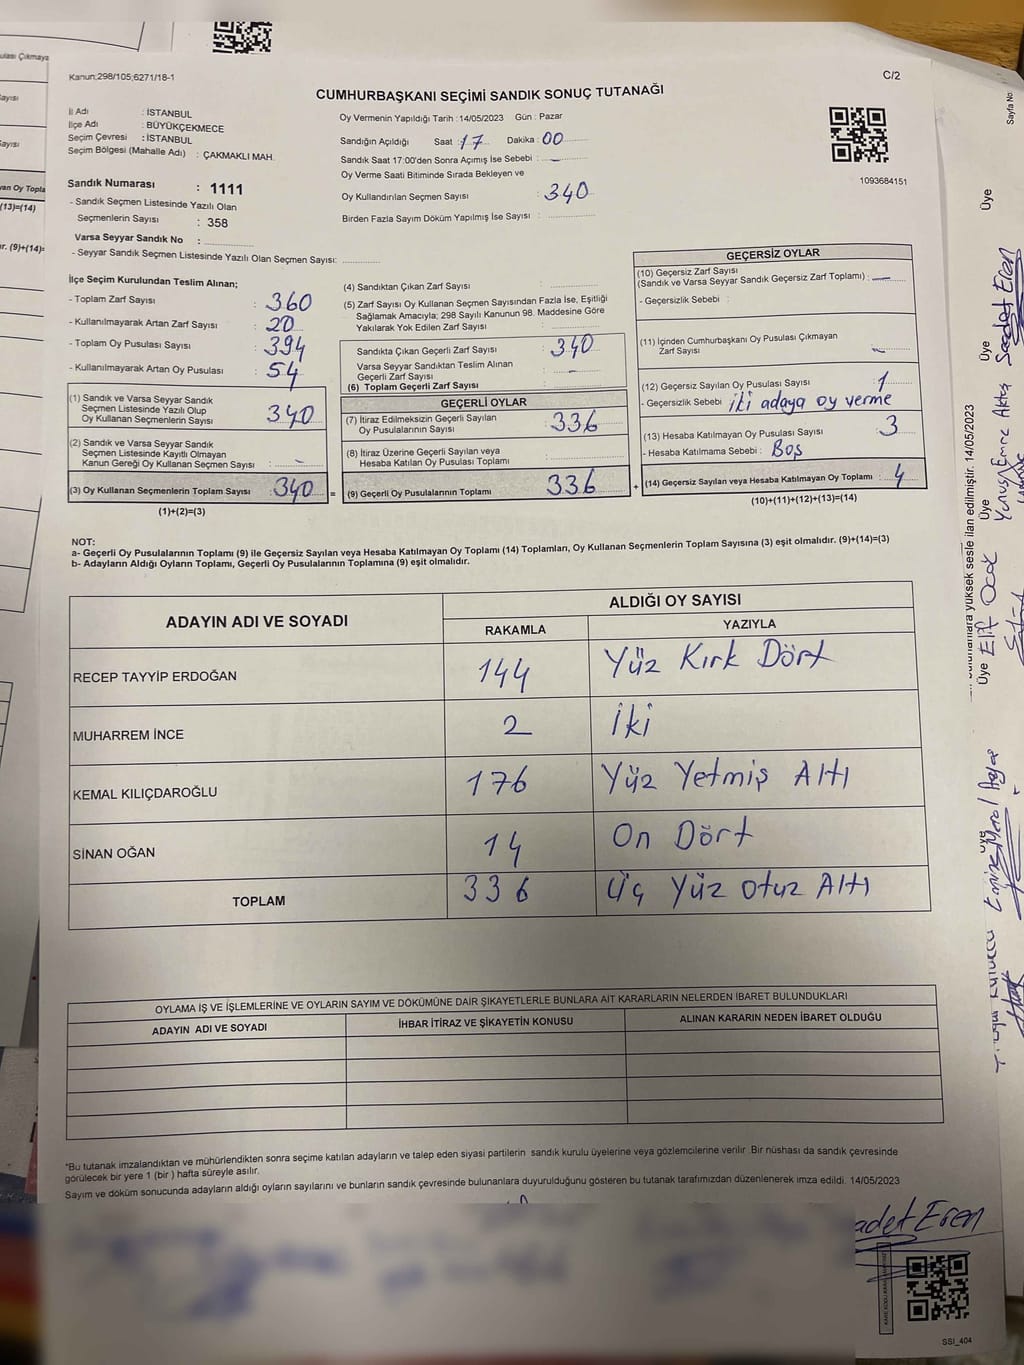 Kanun;298/105;6271/18-1
C/2
CUMHURBAŞKANI SEÇİMİ SANDIK SONUÇ TUTANAĞI
İl Adı : İSTANBUL
İlçe Adı : BÜYÜKÇEKMECE
Seçim Çevresi : İSTANBUL
Seçim Bölgesi (Mahalle Adı) : ÇAKMAKLI MAH.
Oy Vermenin Yapıldığı Tarih :14/05/2023 Gün : Pazar
Sandığın Açıldığı Saat : 17 Dakika : 00
Sandık Saat 17:00'den Sonra Açımış İse Sebebi : -
Oy Verme Saati Bitiminde Sırada Bekleyen ve
Oy Kullandırılan Seçmen Sayısı : 340
Birden Fazla Sayım Döküm Yapılmış İse Sayısı :
1093684151
Sandık Numarası : 1111
- Sandık Seçmen Listesinde Yazılı Olan
Seçmenlerin Sayısı : 358
Varsa Seyyar Sandık No :
- Seyyar Sandık Seçmen Listesinde Yazılı Olan Seçmen Sayısı:
İlçe Seçim Kurulundan Teslim Alınan;
- Toplam Zarf Sayısı : 360
- Kullanılmayarak Artan Zarf Sayısı : 20
- Toplam Oy Pusulası Sayısı : 394
- Kullanılmayarak Artan Oy Pusulası : 54
(1) Sandık ve Varsa Seyyar Sandık
Seçmen Listesinde Yazılı Olup
Oy Kullanan Seçmenlerin Sayısı : 340
(2) Sandık ve Varsa Seyyar Sandık
Seçmen Listesinde Kayıtlı Olmayan
Kanun Gereği Oy Kullanan Seçmen Sayısı : -
(3) Oy Kullanan Seçmenlerin Toplam Sayısı : 340 =
(1)+(2)=(3)
(4) Sandıktan Çıkan Zarf Sayısı :
(5) Zarf Sayısı Oy Kullanan Seçmen Sayısından Fazla İse, Eşitliği
Sağlamak Amacıyla; 298 Sayılı Kanunun 98. Maddesine Göre
Yakılarak Yok Edilen Zarf Sayısı :
Sandıkta Çıkan Geçerli Zarf Sayısı : 340
Varsa Seyyar Sandıktan Teslim Alınan
Geçerli Zarf Sayısı : -
(6) Toplam Geçerli Zarf Sayısı :
GEÇERLİ OYLAR
(7) İtiraz Edilmeksizin Geçerli Sayılan
Oy Pusulalarının Sayısı : 336
(8) İtiraz Üzerine Geçerli Sayılan veya
Hesaba Katılan Oy Pusulası Toplamı :
(9) Geçerli Oy Pusulalarının Toplamı : 336 +
GEÇERSİZ OYLAR
(10) Geçersiz Zarf Sayısı
(Sandık ve Varsa Seyyar Sandık Geçersiz Zarf Toplamı) : -
- Geçersizlik Sebebi :
(11) İçinden Cumhurbaşkanı Oy Pusulası Çıkmayan
Zarf Sayısı : -
(12) Geçersiz Sayılan Oy Pusulası Sayısı : 1
- Geçersizlik Sebebi : iki adaya oy verme
(13) Hesaba Katılmayan Oy Pusulası Sayısı : 3
- Hesaba Katılmama Sebebi : Boş
(14) Geçersiz Sayılan veya Hesaba Katılmayan Oy Toplamı : 4
(10)+(11)+(12)+(13)=(14)
NOT:
a- Geçerli Oy Pusulalarının Toplamı (9) ile Geçersiz Sayılan veya Hesaba Katılmayan Oy Toplamı (14) Toplamları, Oy Kullanan Seçmenlerin Toplam Sayısına (3) eşit olmalıdır. (9)+(14)=(3)
b- Adayların Aldığı Oyların Toplamı, Geçerli Oy Pusulalarının Toplamına (9) eşit olmalıdır.
ADAYIN ADI VE SOYADI
ALDIĞI OY SAYISI
RAKAMLA YAZIYLA
RECEP TAYYİP ERDOĞAN 144 Yüz Kırk Dört
MUHARREM İNCE 2 İki
KEMAL KILIÇDAROĞLU 176 Yüz Yetmiş Altı
SİNAN OĞAN 14 On Dört
TOPLAM 336 Üç Yüz Otuz Altı
OYLAMA İŞ VE İŞLEMLERİNE VE OYLARIN SAYIM VE DÖKÜMÜNE DAİR ŞİKAYETLERLE BUNLARA AİT KARARLARIN NELERDEN İBARET BULUNDUKLARI
ADAYIN ADI VE SOYADI İHBAR İTİRAZ VE ŞİKAYETİN KONUSU ALINAN KARARIN NEDEN İBARET OLDUĞU
*Bu tutanak imzalandıktan ve mühürlendikten sonra seçime katılan adayların ve talep eden siyasi partilerin sandık kurulu üyelerine veya gözlemcilerine verilir. Bir nüshası da sandık çevresinde
görülecek bir yere 1 (bir ) hafta süreyle asılır.
Sayım ve döküm sonucunda adayların aldığı oyların sayılarını ve bunların sandık çevresinde bulunanlara duyurulduğunu gösteren bu tutanak tarafımızdan düzenlenerek imza edildi. 14/05/2023
adet Eren
SSI_404
Sayfa No
Üye
Üye Saadet Eren
Üye Yunus Emre Aktaş
Üye Elif Ocak
Üye
bulunanlara yüksek sesle ilan edilmiştir. 14/05/2023